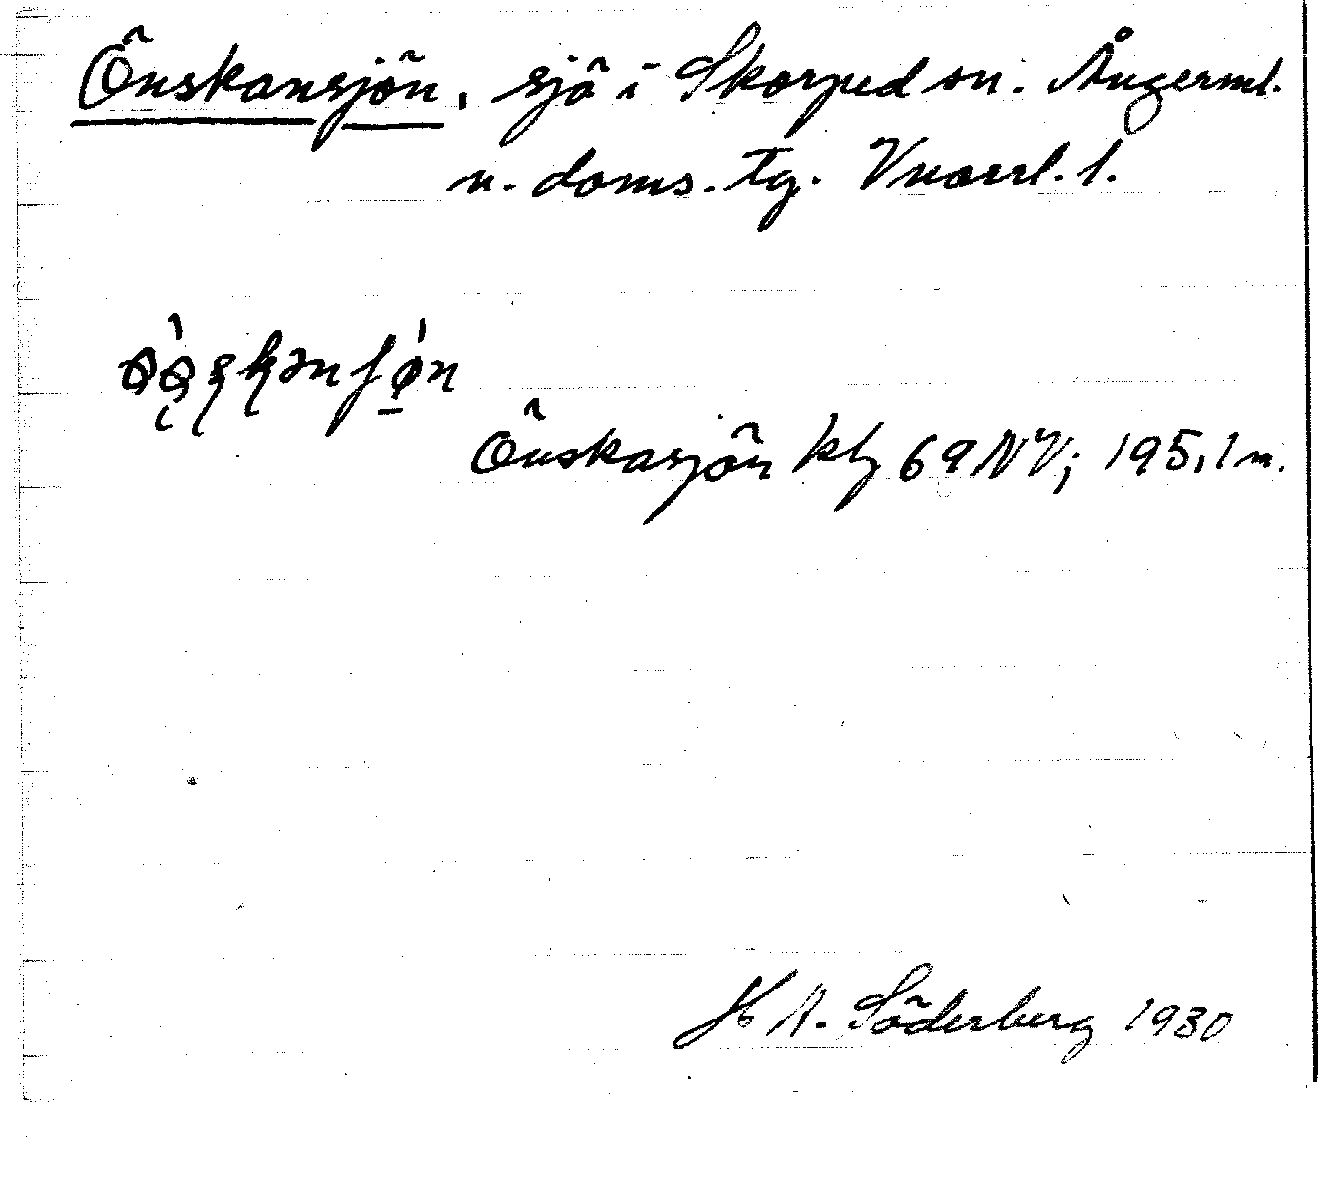 Önskansjön, sjö i Skorped sn. Ångerml.
n. doms. tg. Vnorrl. l.
Önskasjön kbl 69 NV; 195,1 m.
H A. Söderberg 1930